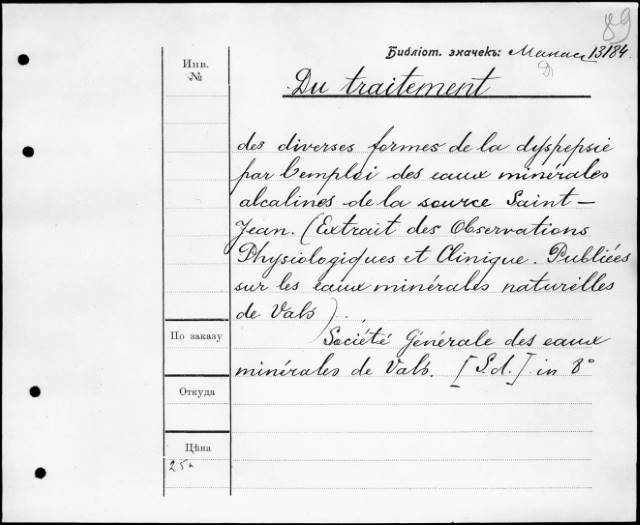 89
Библіот. значекъ: Манас 13184.
D
Инв.
№
Du traitement
des diverses formes de la dyspepsie
par l'emploi des eaux minérales
alcalines de la source Saint-
Jean. (Extrait des Observations
Physiologiques et Clinique. Publiées
sur les eaux minérales naturelles
de Vals).
По заказу
Société Générale des eaux
minérales de Vals. [S.d.] in 8°
Откуда
Цѣна
25к